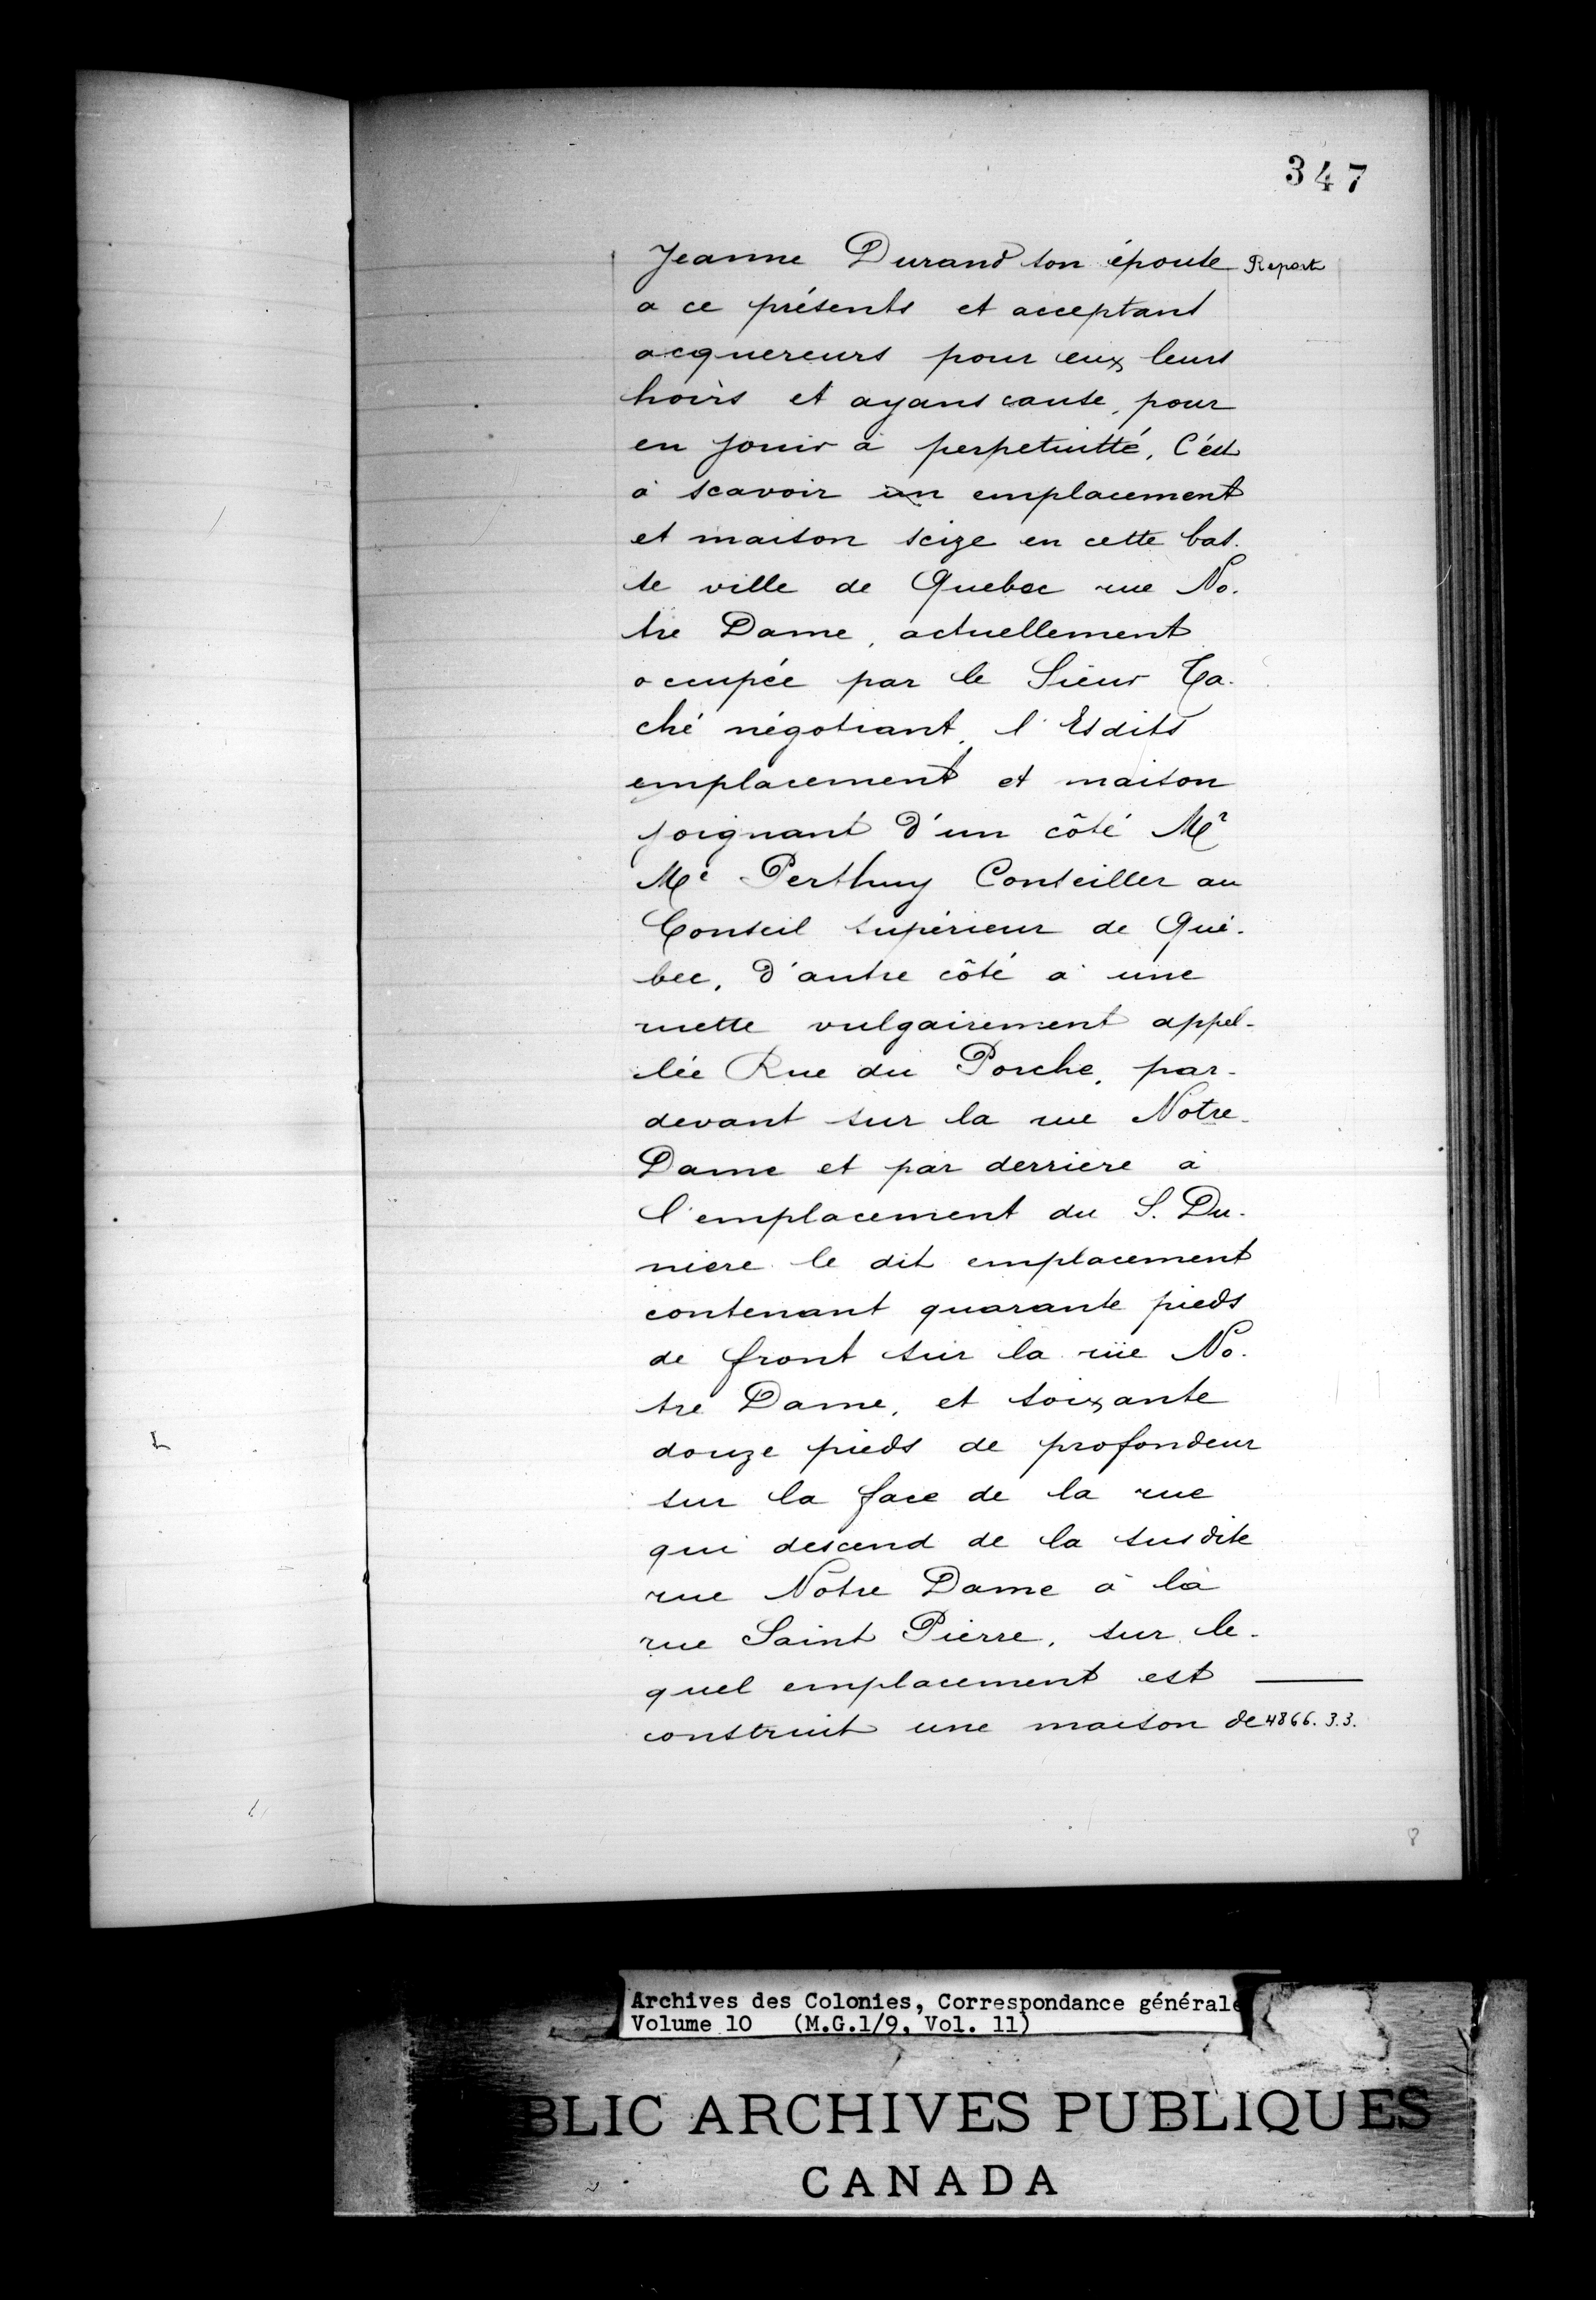 347
Jeanne Durand son épouse Report
a ce présents et acceptant
acquereurs pour eux, leurs
hoirs et ayans cause, pour
en jouir à perpetuitté, C'est
à scavoir un emplacement
et maison seize en cette bas-
se ville de Quebec rue No-
tre Dame, actuellement
occupée par le Sieur Ta-
ché négotiant, l'Esdits
emplacement et maison
joignant d'un côté Mr
Me Perthuy Conseiller au
Conseil supérieur de Qué-
bec, d'autre côté a une
ruette vulgairement appel-
lée Rue du Porche, par-
devant sur la rue Notre-
Dame et par derriere à
l'emplacement du S. Du-
niere le dit emplacement
contenant quarante pieds
de front sur la rüe No-
tre Dame, et soixante
douze pieds de profondeur
sur la face de la rue
qui descend de la susdite
rue Notre Dame à la
rue Saint Pierre, sur le-
quel emplacement est
construit une maison de 4866. 3.3.
Archives des Colonies, Correspondance générale
Volume 10 (M.G.1/9, Vol. 11)
BLIC ARCHIVES PUBLIQUES
CANADA